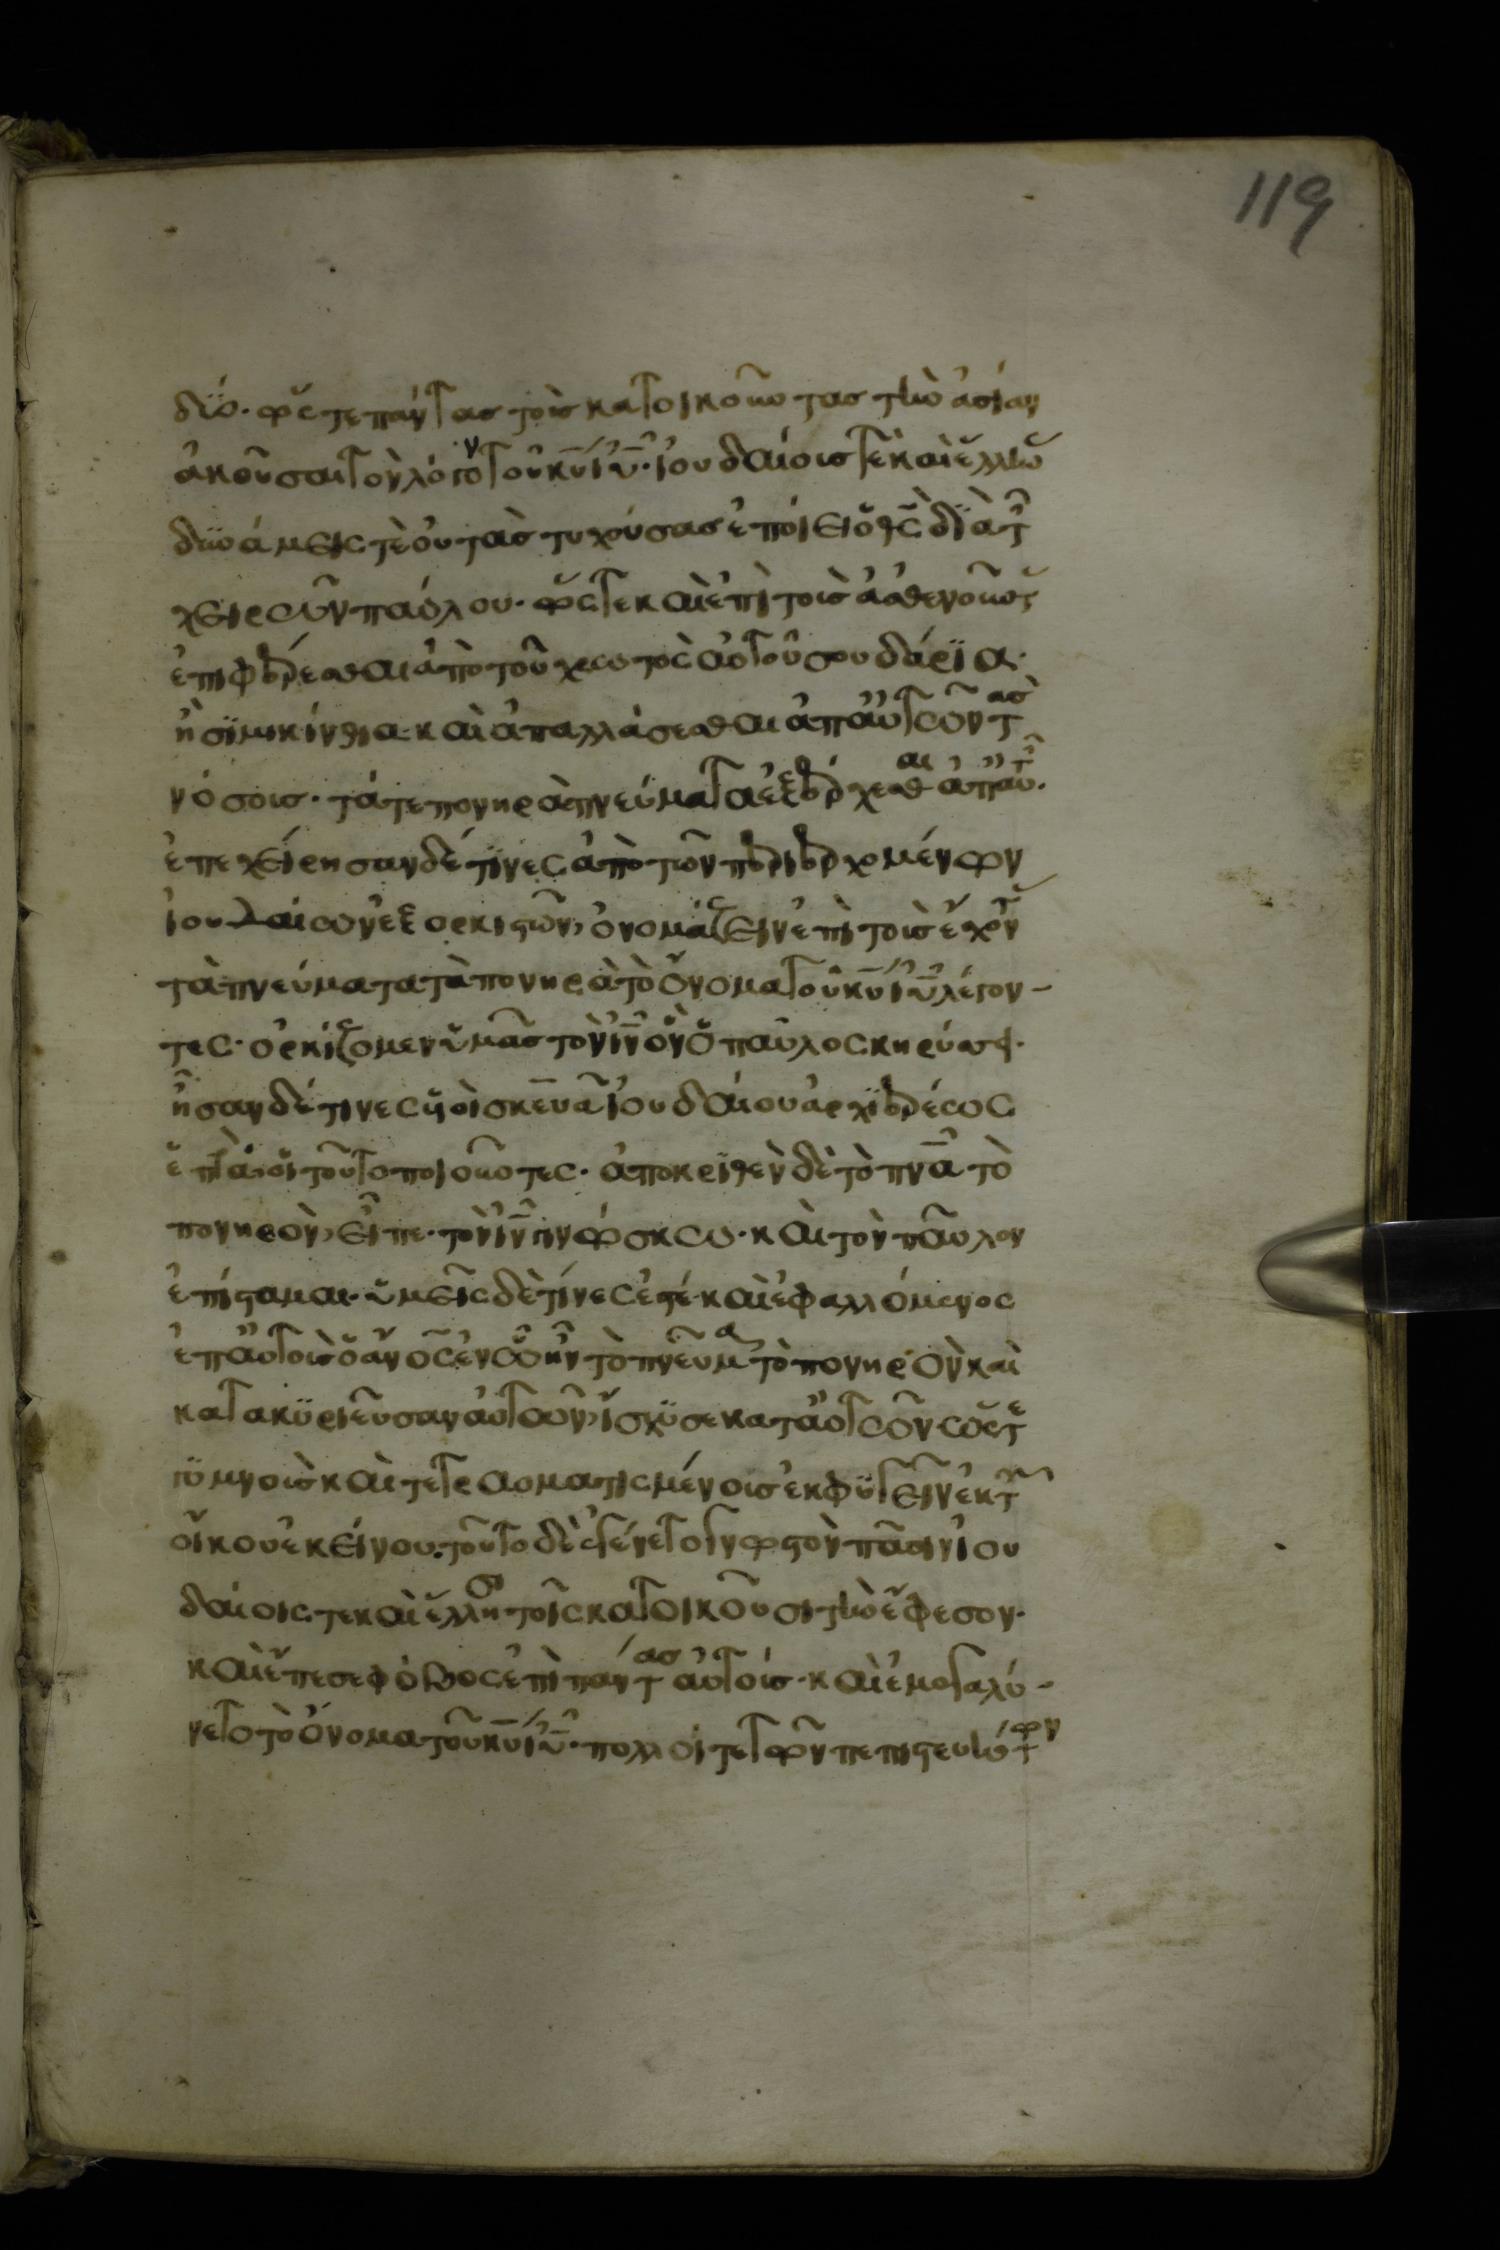 119
δύο· ὥστε πάντας τοὺς κατοικοῦντας τὴν ἀσίαν
ἀκοῦσαι τὸν λόγον τοῦ κυ ιυ· ἰουδαίους τὲ καὶ ἕλλην
δυνάμεις τὲ οὐ τὰς τυχούσας ἐποίει ὁ θς διὰ τ
χειρῶν παύλου· ὥστε καὶ ἐπὶ τοὺς ἀσθενοῦντας
ἐπιφέρεσθαι ἀπὸ τοῦ χρωτὸς αὐτοῦ σουδάρϊα·
ἢ σϊμικίνθια· καὶ ἀπαλλάσεσθαι ἀπ αὐτῶν τὰς
νόσους· τά τε πονηρὰ πνεύματα ἐξέρχεσθαι ἀπ αὐτ·
ἐπεχείρησαν δέ τϊνες ἀπὸ τῶν περιερχομένων
ἰουδαίων ἐξορκιστῶν, ὀνομάζειν ἐπὶ τοὺς ἔχοντ
τὰ πνεύματα τὰ πονηρὰ τὸ ὄνομα τοῦ κυ ιυ λέγον-
τες· ὁρκίζομεν ὑμᾶς τὸν ιν ὃν ὁ παῦλος κηρύσσει·
ἦσαν δέ τινες υἱοὶ σκευᾶ ἰουδαίου ἀρχϊερέως
ἑπτὰ· οἱ τοῦτο ποιοῦντες· ἀποκριθὲν δὲ τὸ πνα τὸ
πονηρὸν, εἶπε· τὸν ιν γινώσκω· καὶ τὸν παῦλον
ἐπίσταμαι· ὑμεῖς δὲ τίνες ἐστέ· καὶ ἐφαλλόμενος
ἐπ αὐτοὺς ὁ ανος ἐν ᾧ ἦν τὸ πνεῦμα τὸ πονηρὸν καὶ
κατακϋριεῦσαν αὐτῶν, ἴσχϋσε κατ αὐτῶν ὥστε
γϋμνοὺς καὶ τετραυματισμένους ἐκφϋγεῖν ἐκ τ
οἴκου ἐκείνου· τοῦτο δὲ ἐγένετο γνωστὸν πᾶσιν ἰου
δαίοις τε καὶ ἕλλησι τοῖς κατοικοῦσι τὴν ἔφεσον·
καὶ ἔπεσε φόβος ἐπὶ πάντας αὐτούς· καὶ ἐμεγαλύ-
νετο τὸ ὄνομα τοῦ κυ ιυ· πολλοί τε τῶν πεπιστευκότων